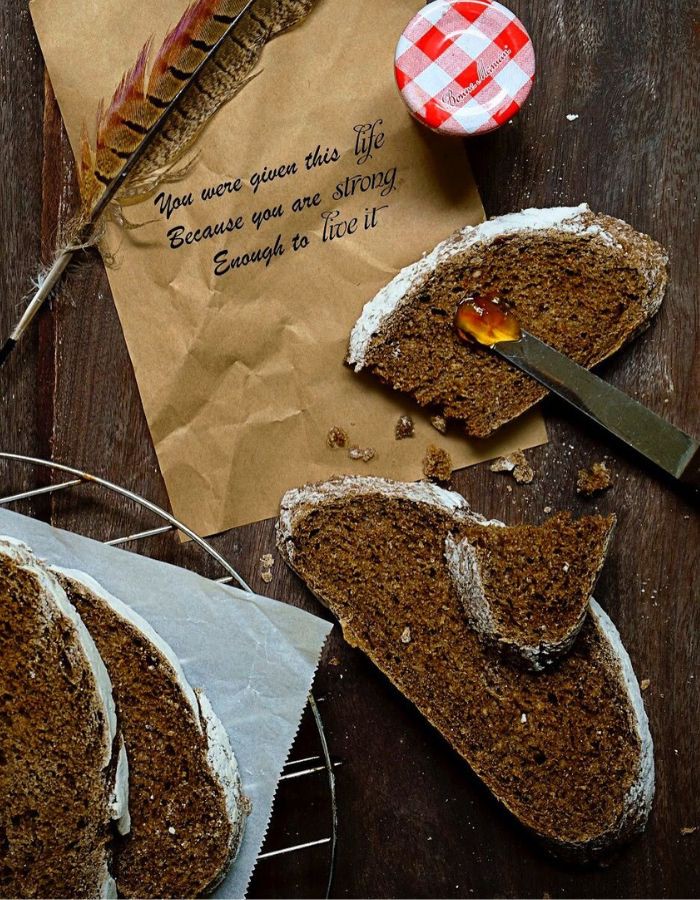 Bonne Maman
You were given this life
Because you are strong
Enough to live it